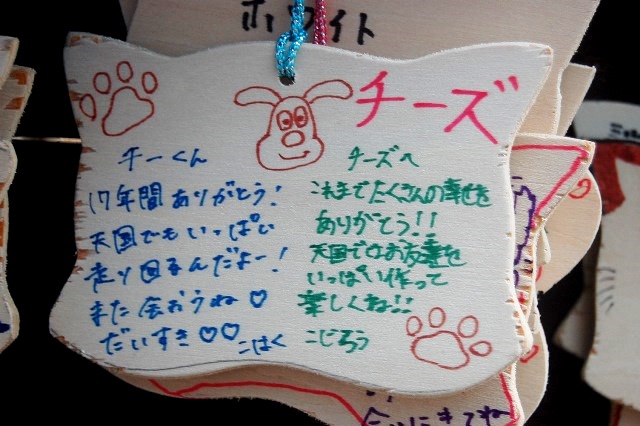 ホワイト
チーズ
チーくん
17年間ありがとう!
天国でもいっぱい
走り回るんだよー!
また会おうね♡
だいすき♡♡
こはく
チーズへ
これまでたくさんの幸せを
ありがとう!!
天国ではお友達を
いっぱい作って
楽しくね!!
こじろう